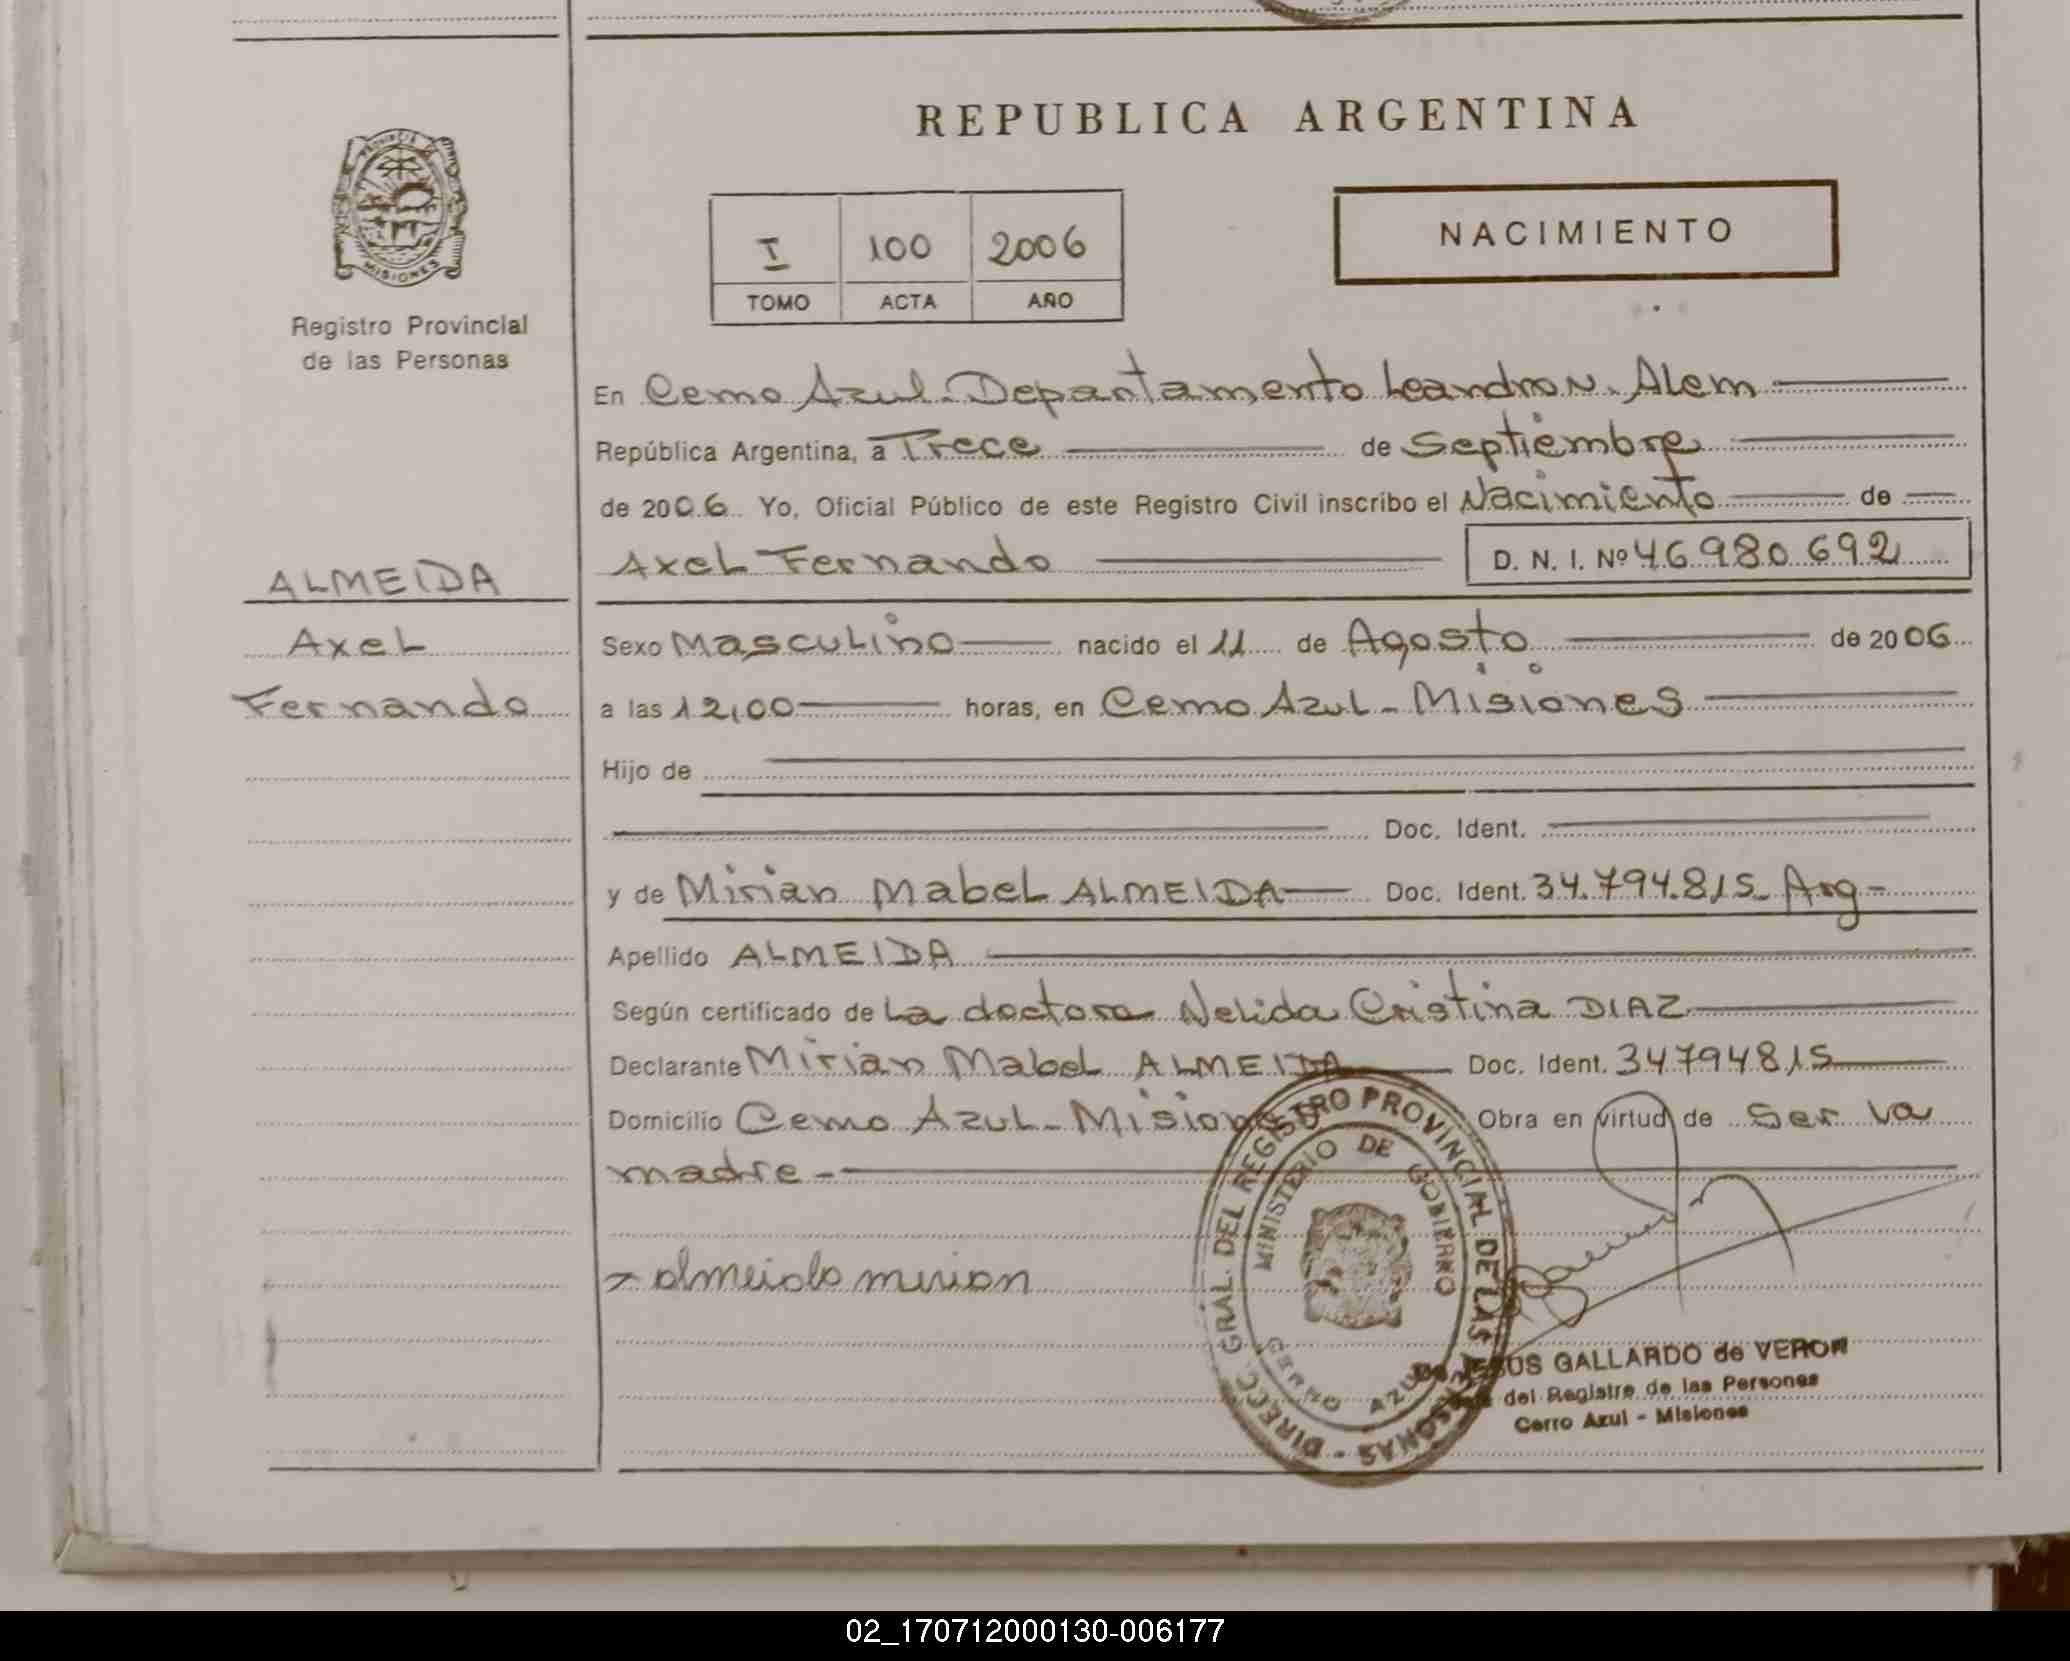 REPUBLICA ARGENTINA
PROVINCIA DE
MISIONES
Registro Provincial
de las Personas
NACIMIENTO
I 100 2006
TOMO ACTA AÑO
En Cerro Azul - Departamento Leandro N. Alem
República Argentina, a Trece de Septiembre
de 2006 Yo, Oficial Público de este Registro Civil inscribo el Nacimiento de
Axel Fernando D. N. I. Nº 46.980.692
ALMEIDA
Axel
Fernando
Sexo Masculino nacido el 11 de Agosto de 2006
a las 12,00 horas, en Cerro Azul - Misiones
Hijo de
Doc. Ident.
y de Mirian Mabel ALMEIDA Doc. Ident. 34.794.815 - Arg -
Apellido ALMEIDA
Según certificado de La doctora Nelida Cristina DIAZ
Declarante Mirian Mabel ALMEIDA Doc. Ident. 34794815
Domicilio Cerro Azul - Misiones Obra en virtud de ser la
madre -
almeida mirian
DIRECC. GRAL. DEL REGISTRO PROVINCIAL DE LAS PERSONAS -
MINISTERIO DE GOBIERNO
CERRO AZUL
JESUS GALLARDO de VERON
del Registro de las Personas
Cerro Azul - Misiones
02_170712000130-006177